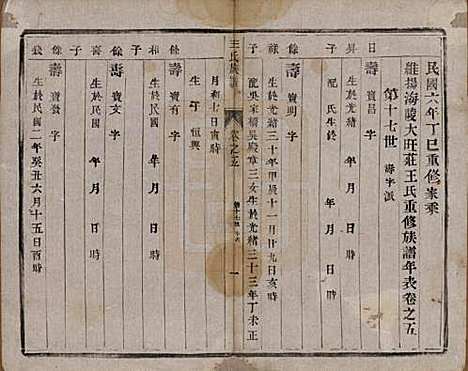 民國六年丁巳重修家乘
維揚海陵大旺莊王氏重修族譜年表卷之五
第十七世 壽字派
日昇子
壽 寶昌 字
生於光緒 年 月 日 時
配 氏生於 年 月 日 時
祿子
壽 寶明 字
生於光緒三十年甲辰十一月廿九日亥時
配吳家橋吳殿章三女生於光緒三十三年丁未正
王氏族譜
卷之五
一
月初七日 時
生子 恒興
餘 壽 寶有 字
生於民國 年 月 日 時
和子
餘 壽 寶文 字
生於民國 年 月 日 時
喜子
餘 壽 寶發 字
生於民國二年癸丑六月十五日酉時